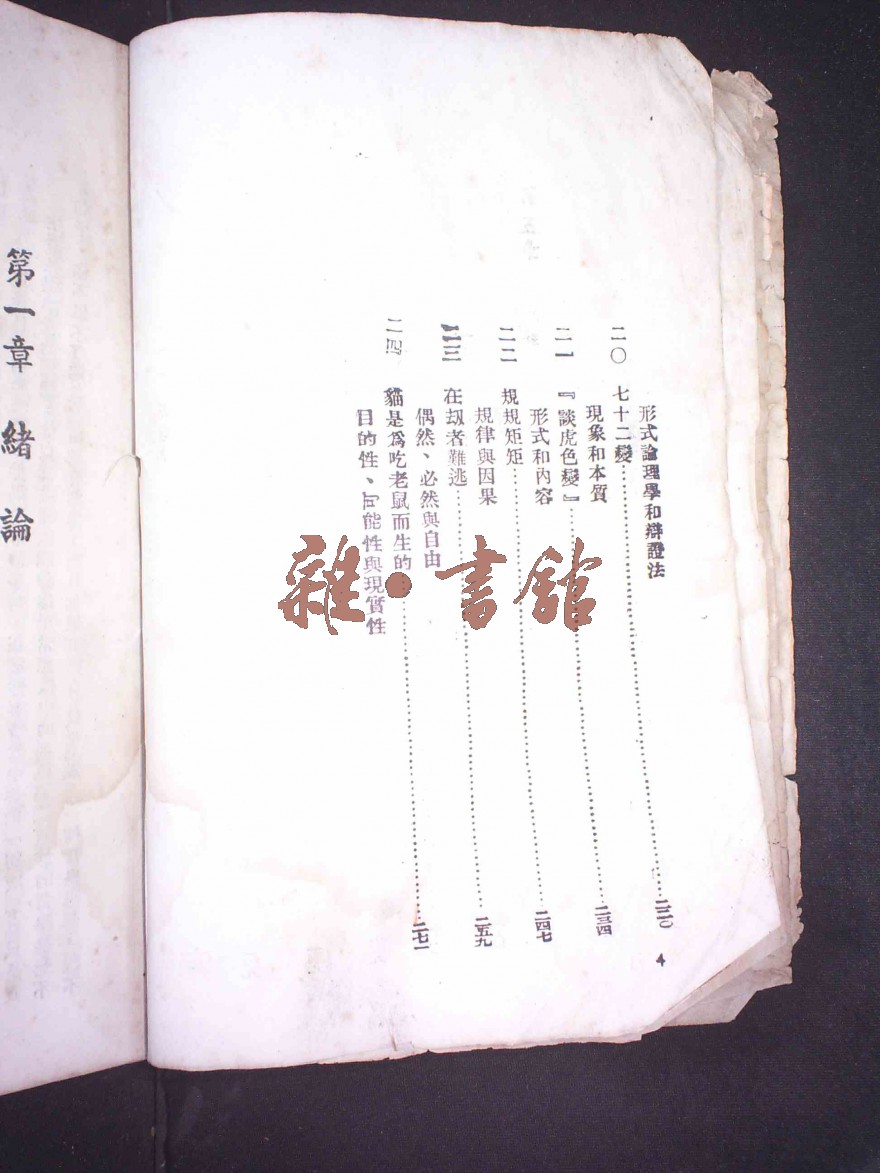 形式論理學和辯證法
二〇 七十二變……二二〇
現象和本質
二一 『談虎色變』……二三四
形式和內容
二二 規規矩矩……二四七
規律與因果
二三 在劫者難逃……二五九
偶然、必然與自由
二四 貓是爲吃老鼠而生的……二七一
目的性、可能性與現實性
4
第一章 緒論
雜·書館